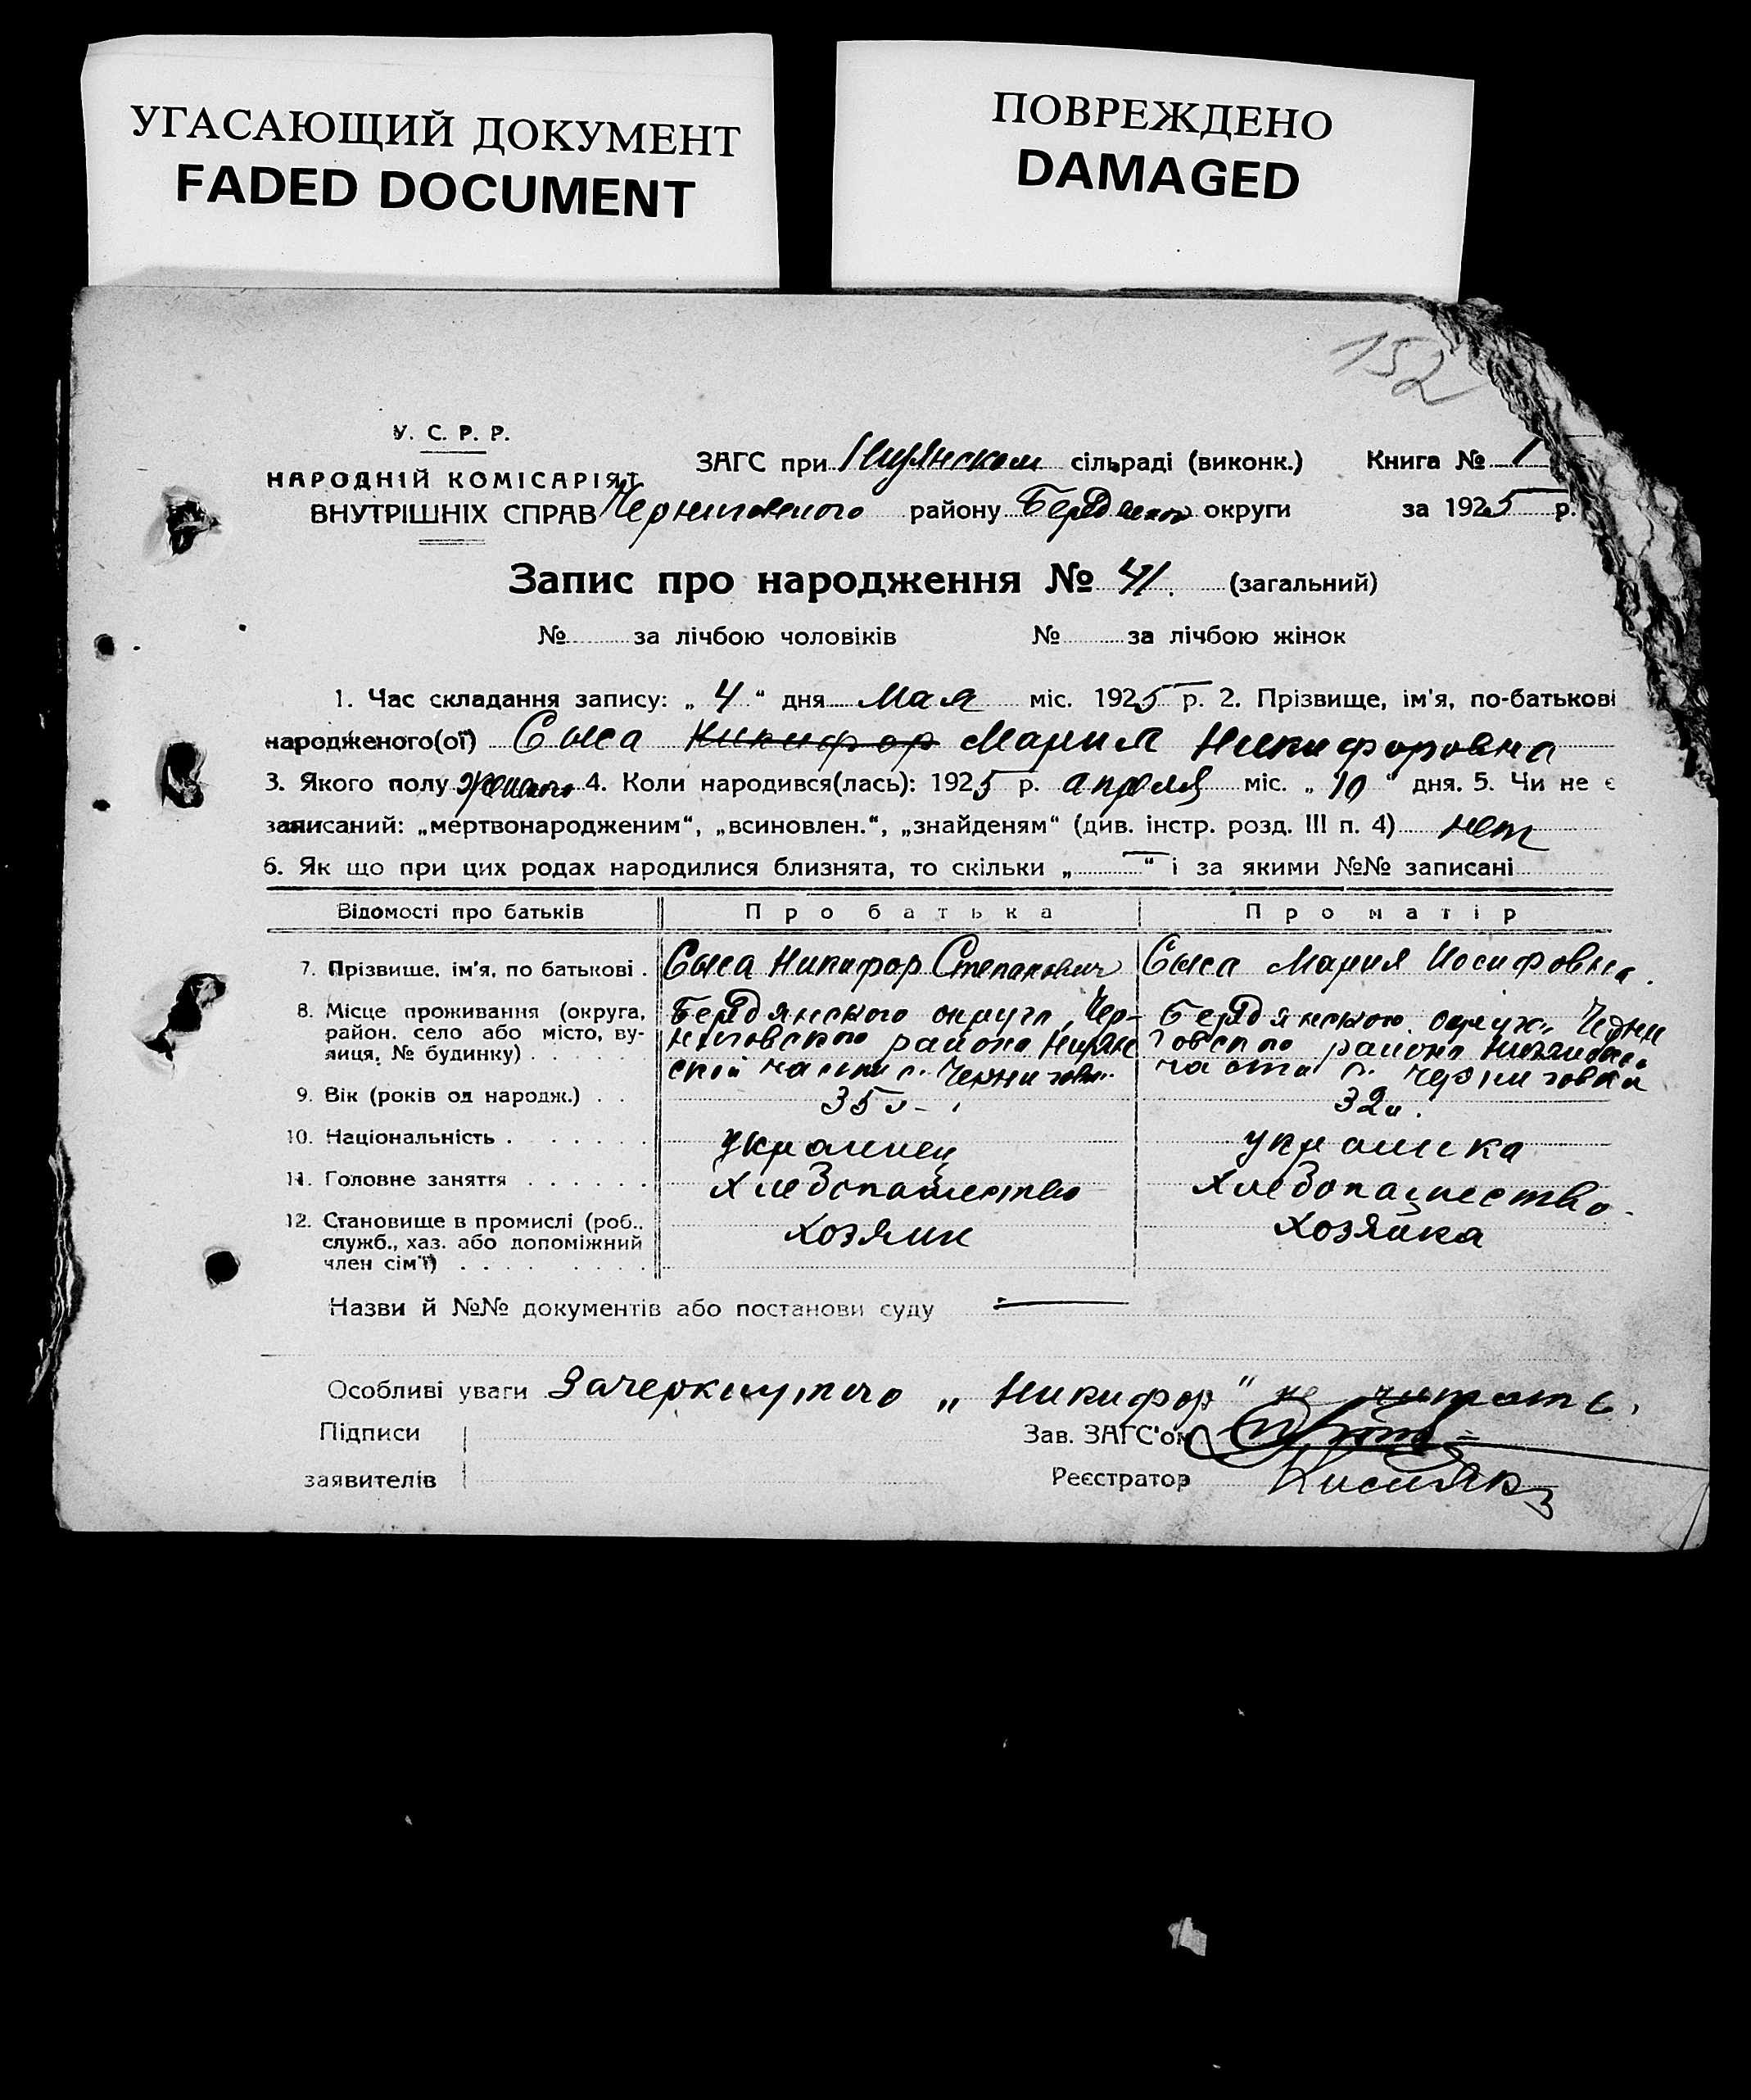 УГАСАЮЩИЙ ДОКУМЕНТ
FADED DOCUMENT
ПОВРЕЖДЕНО
DAMAGED
152
У. С. Р. Р.
НАРОДНІЙ КОМІСАРІЯТ
ВНУТРІШНІХ СПРАВ
ЗАГС при сільраді (виконк.) Книга № 1
Черниговского району Бердянской округи за 1925 р.
Запис про народження № 41. (загальний)
№ за лічбою чоловіків № за лічбою жінок
1. Час складання запису: „ 4 “ дня Мая міс. 1925 р. 2. Прізвище, ім'я, по-батькові
народженого(ої) Сыса Никифор Мария Никифоровна
3. Якого полу женского 4. Коли народився(лась): 1925 р. апреля міс. „ 10 “ дня. 5. Чи не є
записаний: „мертвонародженим“, „всиновлен.“, „знайденям“ (див. інстр. розд. III п. 4) нет
6. Як що при цих родах народилися близнята, то скільки „ — “ і за якими №№ записані
Відомості про батьків Про батька Про матір
7. Прізвище, ім'я, по батькові . Сыса Никифор Степанович Сыса Мария Иосифовна.
8. Місце проживання (округа, район, село або місто, вулиця, № будинку) . . . . .
Бердянского округа, Чер-
ниговского района
ской части с. Чернигов.
Бердянского округ. Черни
говского района
части с. Черниговка
9. Вік (років од народж.) . . 35 л. 32 л.
10. Національність . . . . . . . украинец украинка
11. Головне заняття . . . . . . хлебопашество хлебопашество.
12. Становище в промислі (роб., служб., хаз. або допоміжний член сім'ї) . . . . . . . . хозяин хозяйка
Назви й №№ документів або постанови суду —
Особливі уваги Зачеркнутого „ Никифор " не читать.
Підписи
заявителів
Зав. ЗАГС'ом
Реєстратор